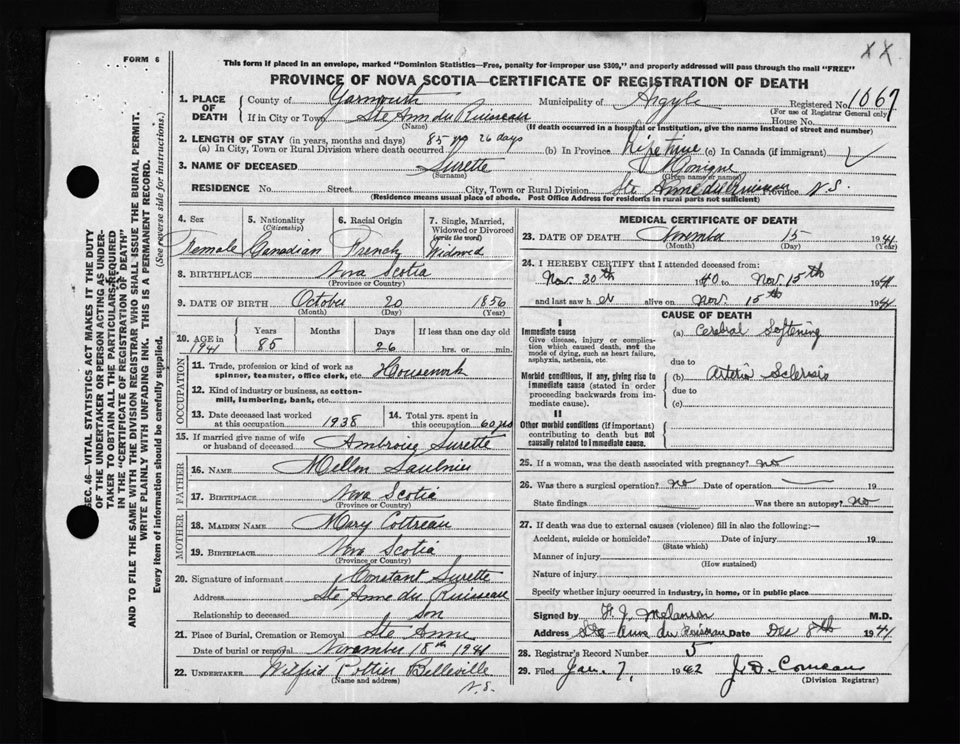 XX
FORM 6
This form if placed in an envelope, marked "Dominion Statistics—Free, penalty for improper use $300," and properly addressed will pass through the mail "FREE"
PROVINCE OF NOVA SCOTIA—CERTIFICATE OF REGISTRATION OF DEATH
1. PLACE OF DEATH
County of Yarmouth Municipality of Argyle Registered No. 1067
(For use of Registrar General only)
If in City or Town Ste Ann du Ruisseau House No.
(Name) (If death occurred in a hospital or institution, give the name instead of street and number)
2. LENGTH OF STAY (in years, months and days) 85 yrs 26 days
(a) In City, Town or Rural Division where death occurred (b) In Province Life time (c) In Canada (if immigrant)
3. NAME OF DECEASED Surette Monique
(Surname) (Given name or names)
RESIDENCE No. Street City, Town or Rural Division Ste Anne du Ruisseau Province N.S.
(Residence means usual place of abode. Post Office Address for residents in rural parts not sufficient)
SEC. 46—VITAL STATISTICS ACT MAKES IT THE DUTY
OF THE UNDERTAKER OR PERSON ACTING AS UNDER-
TAKER TO OBTAIN ALL THE PARTICULARS REQUIRED
IN THE "CERTIFICATE OF REGISTRATION OF DEATH"
AND TO FILE THE SAME WITH THE DIVISION REGISTRAR WHO SHALL ISSUE THE BURIAL PERMIT.
WRITE PLAINLY WITH UNFADING INK. THIS IS A PERMANENT RECORD.
Every item of information should be carefully supplied. (See reverse side for instructions.)
4. Sex 5. Nationality 6. Racial Origin 7. Single, Married,
(Citizenship) Widowed or Divorced
(write the word)
Female Canadian French Widowed
8. BIRTHPLACE Nova Scotia
(Province or Country)
9. DATE OF BIRTH October 20 1856
(Month) (Day) (Year)
10. AGE in 1941
Years Months Days If less than one day old
85 26 hrs. or min.
OCCUPATION
11. Trade, profession or kind of work as
spinner, teamster, office clerk, etc. Housework
12. Kind of industry or business, as cotton-
mill, lumbering, bank, etc.
13. Date deceased last worked 14. Total yrs. spent
at this occupation 1938 in this occupation 60 yrs
15. If married give name of wife
or husband of deceased Ambroise Surette
FATHER
16. NAME Saulnier
17. BIRTHPLACE Nova Scotia
(Province or Country)
MOTHER
18. MAIDEN NAME Mary Cottreau
19. BIRTHPLACE Nova Scotia
(Province or Country)
20. Signature of informant Constant Surette
Address Ste Anne du Ruisseau
Relationship to deceased son
21. Place of Burial, Cremation or Removal Ste Anne
Date of burial or removal November 18th 1941
22. UNDERTAKER Wilfrid Pottier Belleville
(Name and address) N.S.
MEDICAL CERTIFICATE OF DEATH
23. DATE OF DEATH November 15 1941
(Month) (Day) (Year)
24. I HEREBY CERTIFY that I attended deceased from:
Nov. 30th 1940 to Nov. 15th 1941
and last saw her alive on Nov. 15th 1941
CAUSE OF DEATH
I
Immediate cause (a) Cerebral Softening
Give disease, injury or complica-
tion which caused death, not the
mode of dying, such as heart failure,
asphyxia, asthenia, etc.
due to
Morbid conditions, if any, giving rise to (b) Arterio Sclerosis
immediate cause (stated in order
proceeding backwards from im-
mediate cause).
due to
(c)
II
Other morbid conditions (if important)
contributing to death but not
causally related to immediate cause.
25. If a woman, was the death associated with pregnancy? no
26. Was there a surgical operation? no Date of operation 19
State findings Was there an autopsy? no
27. If death was due to external causes (violence) fill in also the following:—
Accident, suicide or homicide? Date of injury 19
(State which)
Manner of injury
(How sustained)
Nature of injury
Specify whether injury occurred in industry, in home, or in public place
Signed by H. J. Melanson M.D.
Address Ste-Anne du Ruisseau Date Dec 8th 1941
28. Registrar's Record Number 5
29. Filed Jan. 7, 1942 J. D. Comeau
(Division Registrar)